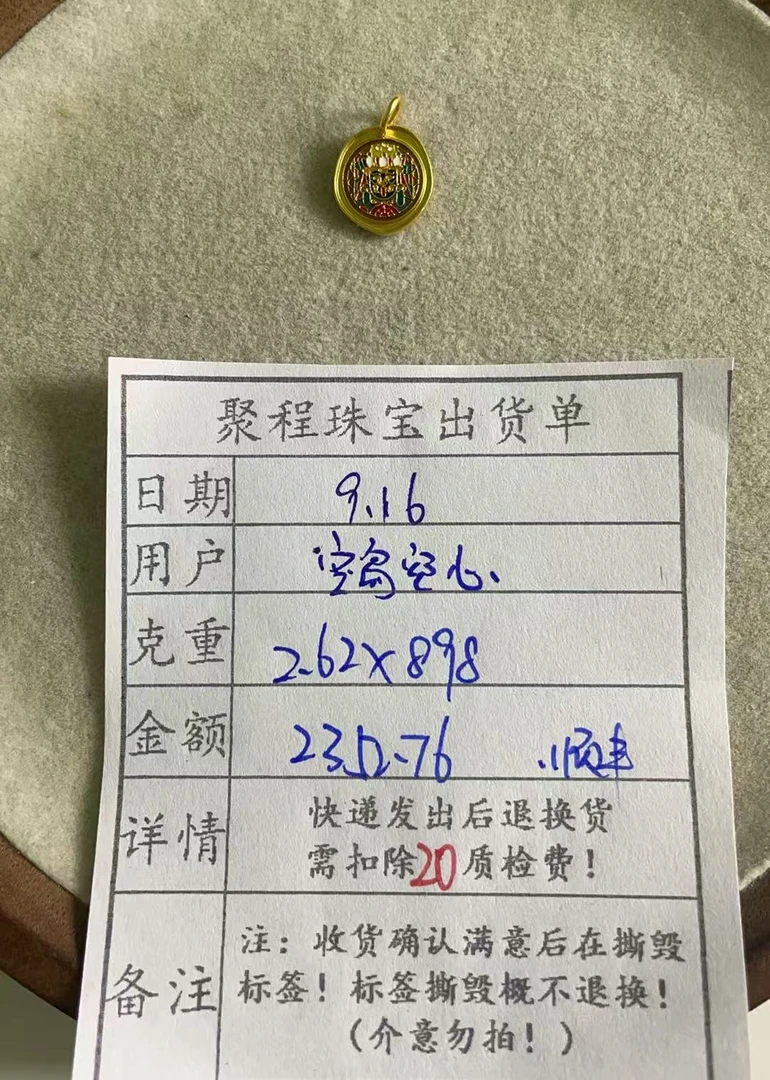 聚程珠宝出货单
日期 9.16
用户 空岛空心、
克重 2.62×898
金额 2352.76 .顺丰
详情 快递发出后退换货
需扣除20质检费!
备注 注:收货确认满意后在撕毁
标签!标签撕毁概不退换!
(介意勿拍!)